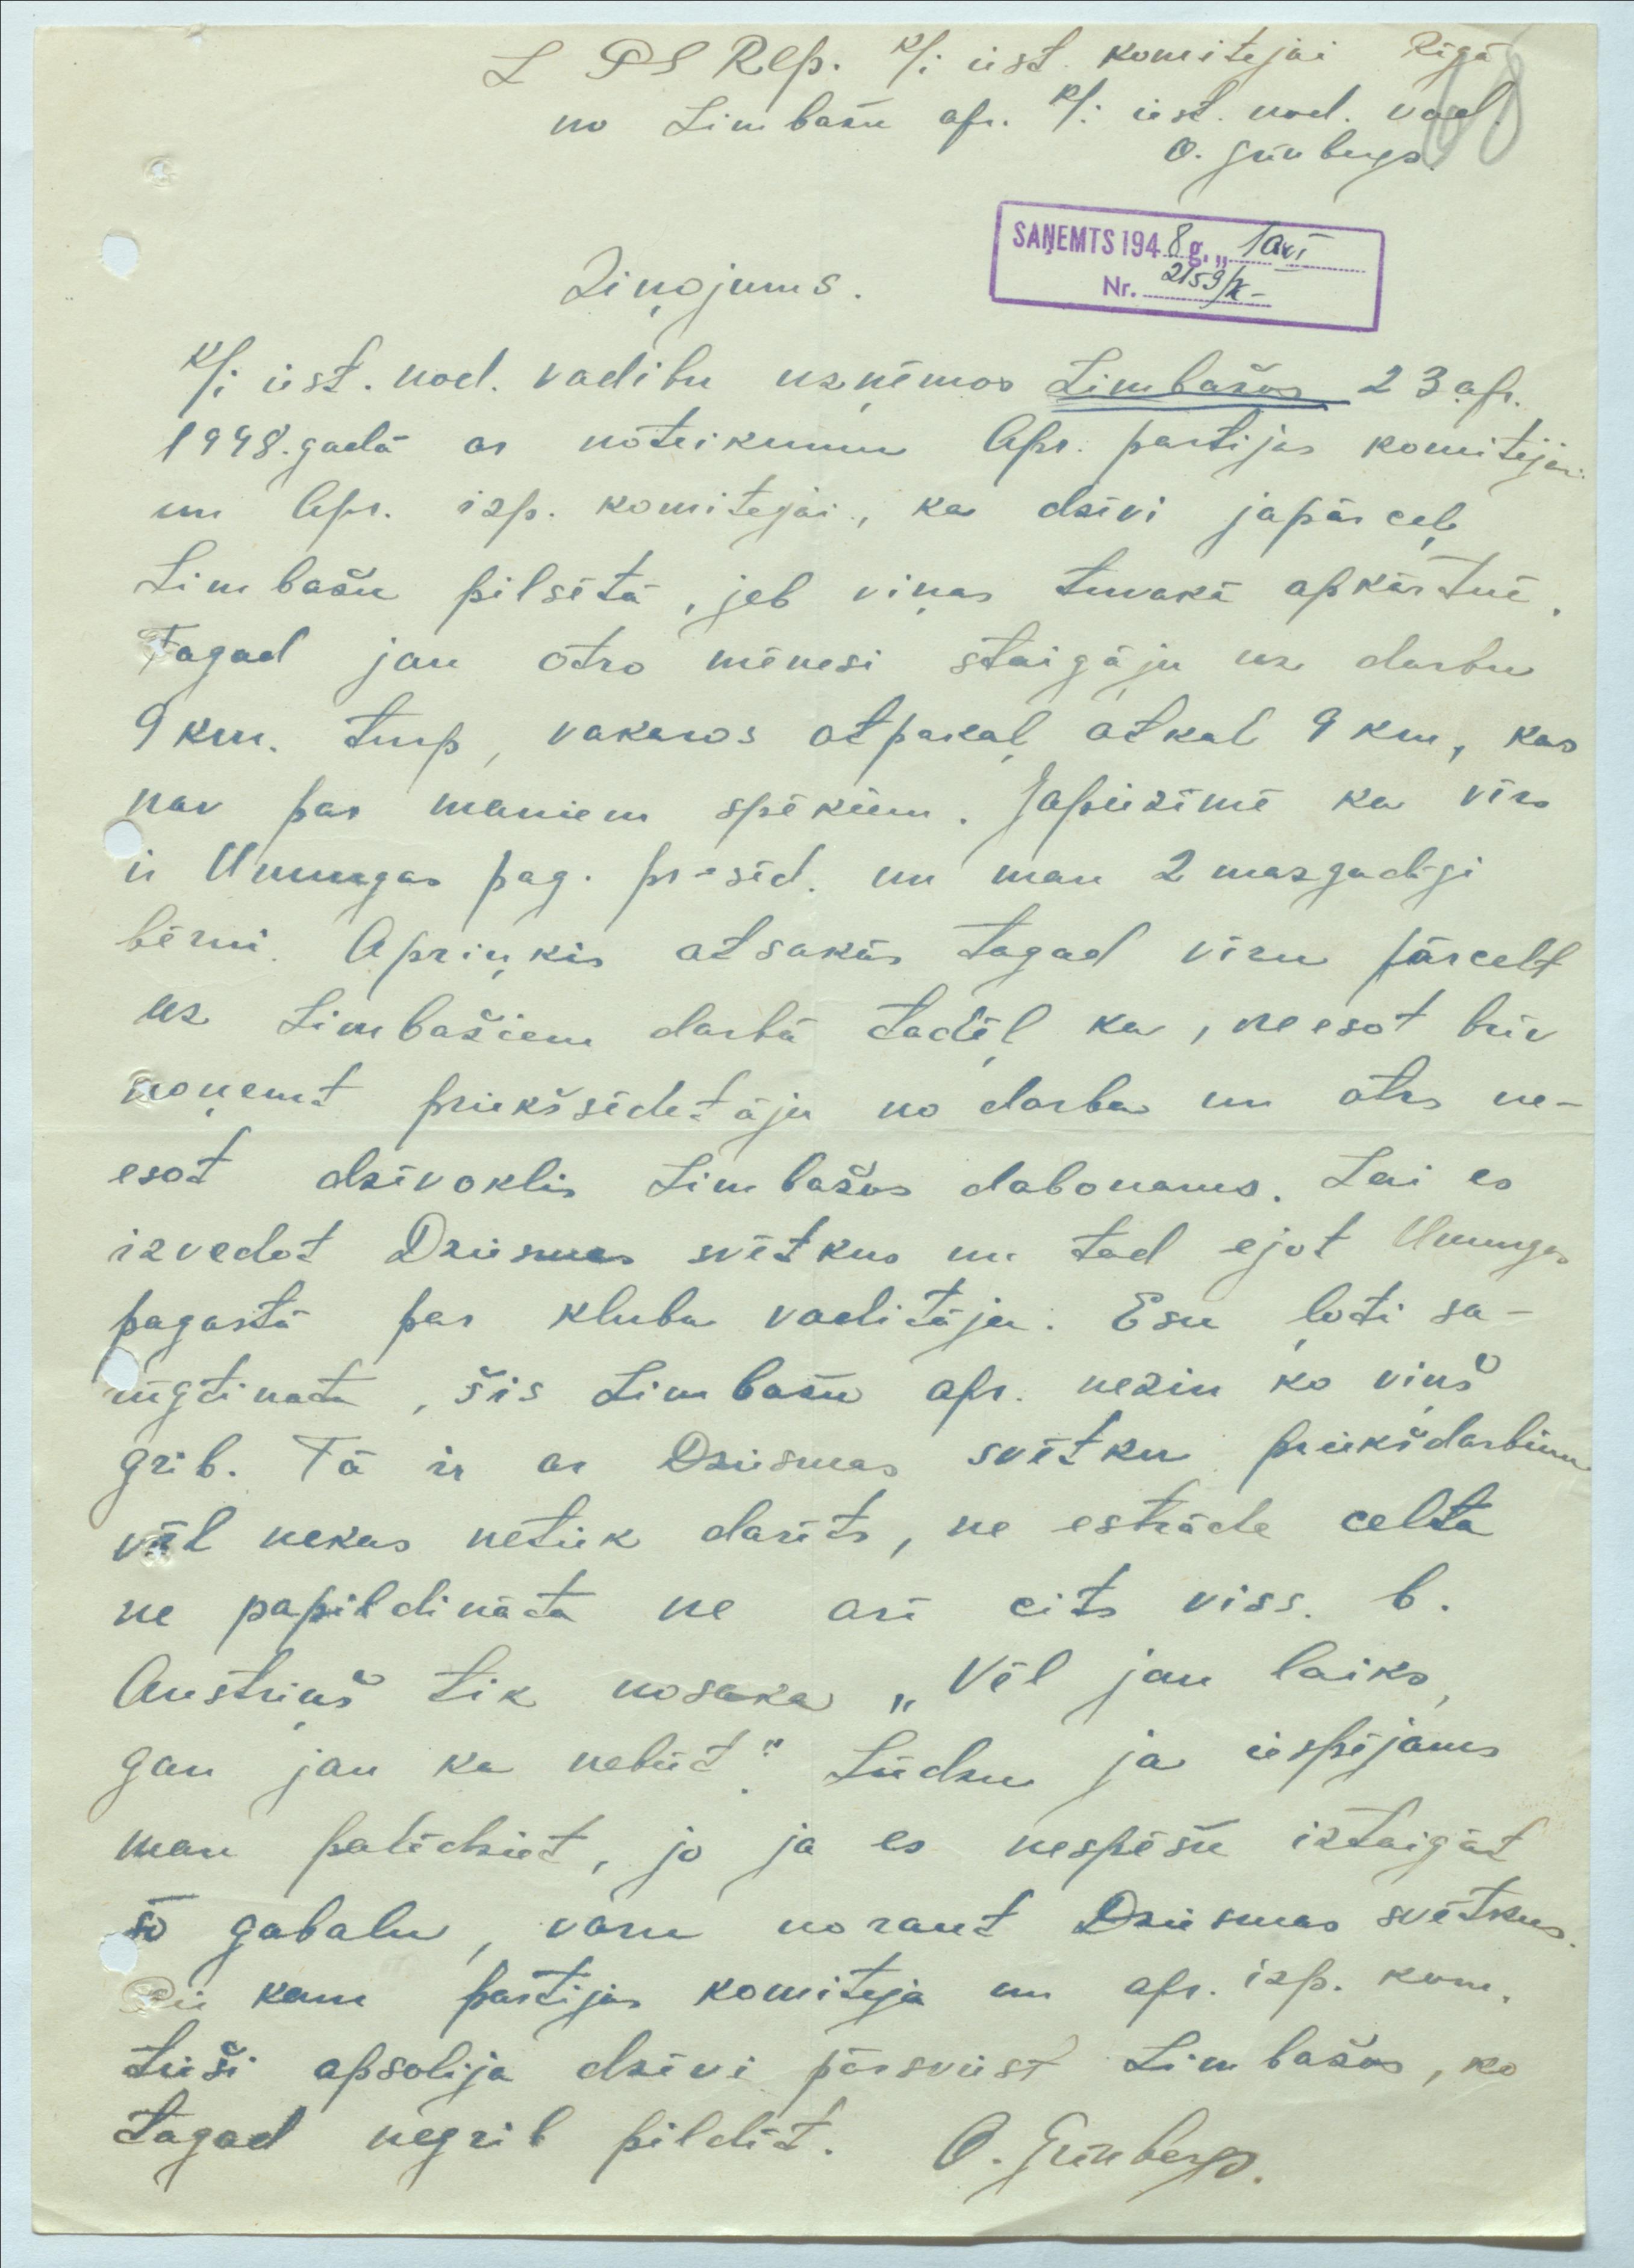 L PS Rep. k/i iest. komitejai Rīgā
no Limbažu apr. k/i iest. nod. vad.
O. Grīnbergs.
68
SAŅEMTS 1948 g. „
Nr. 2159/k-
Ziņojums.
K/i iest. nod. vadību uzņēmos Limbažos 23 apr.
1948. gadā ar noteikumu Apr. partijas komitejai
un Apr. izp. komitejai, ka dzīvi jāpārceļ
Limbažu pilsētā, jeb viņas tuvakā apkārtnē.
Tagad jau otro mēnesi staigāju uz darbu
9 km. turp, vakaros atpakaļ atkal 9 km, kas
nav par maniem spēkiem. Jāpiezīmē ka vīrs
ir Umurgas pag. pr-sēd. un man 2 mazgadīgi
bērni. Apriņķis atsakās tagad vīru pārcelt
uz Limbažiem darbā tadēļ ka, neesot brīv
noņemt priekšsēdetāju no darba un otrs ne-
esot dzīvoklis Limbažos dabonams. Lai es
izvedot Dziesmas svētkus un tad ejot Umurgas
pagastā par kluba vadītāju. Esu ļoti sa-
rūgtinata, šis Limbažu apr. nezin ko viņš
grib. Tā ir ar Dziesmas svētku priekšdarbiem
vēl nekas netiek darīts, ne estrāde celta
ne papildināta ne arī cits viss. b.
Austriņš tik nosaka „Vēl jau laiks,
gan jau ka nebūt". Lūdzu ja iespējams
man palīdziet, jo ja es nespēšu iztaigāt
šo gabalu, varu noraut Dziesmas svētkus.
Pie kam partijas komiteja un apr. izp. kom.
tieši apsolija dzīvi pārsviest Limbažos, ko
tagad negrib pildīt. O. Grīnbergs.